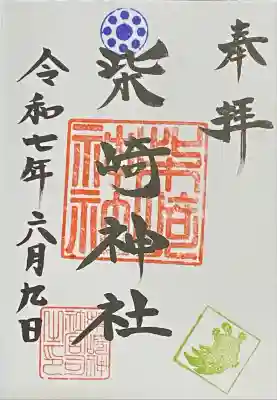 奉拝
柴崎神社
令和七年六月九日
柴崎神社